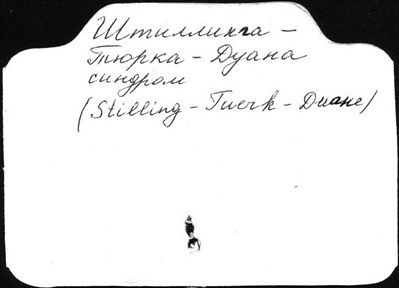 Штиллинга –
Тюрка – Дуана
синдром
(Stilling – Tuerk – Duane)